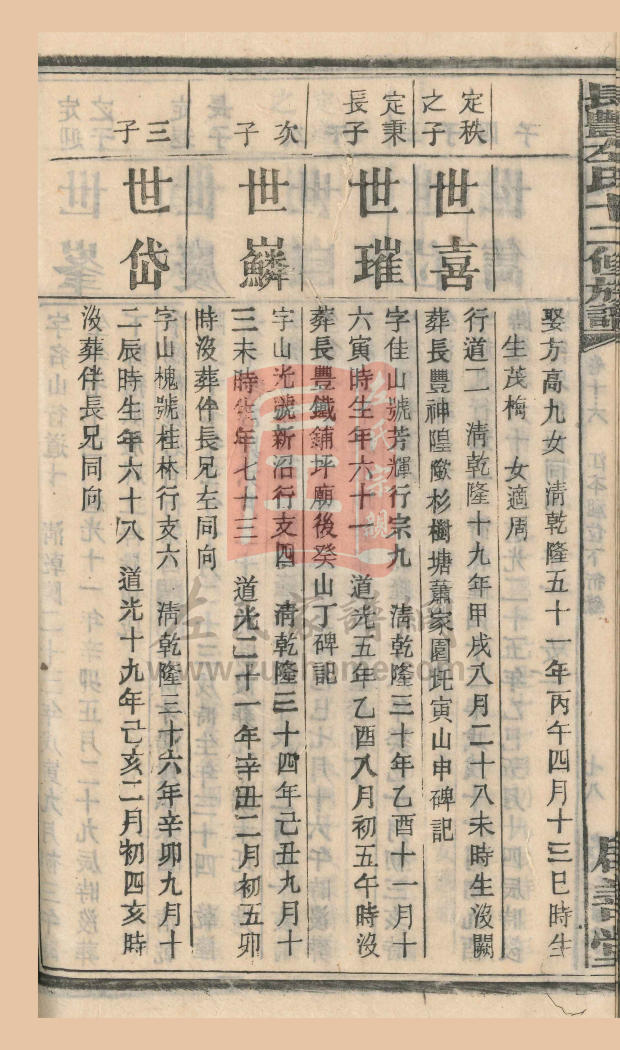 長豐左氏十二修族譜
娶方高九女 淸乾隆五十一年丙午四月十三巳時生
生茂梅 女適周
定秩之子
世喜
行道二 淸乾隆十九年甲戌八月二十八未時生沒闕
葬長豐神隍歐杉樹塘蕭家園坵寅山申碑記
定秉長子
世璀
字佳山號芳輝行宗九 淸乾隆三十年乙酉十一月十
六寅時生年六十一 道光五年乙酉八月初五午時沒
葬長豐鐵鋪坪廟後癸山丁碑記
次子
世麟
字山光號新沼行支四 淸乾隆三十四年己丑九月十
三未時生年七十三 道光二十一年辛丑二月初五卯
時沒葬伴長兄左同向
三子
世岱
字山槐號桂林行支六 淸乾隆三十六年辛卯九月十
二辰時生年六十八 道光十九年己亥二月初四亥時
沒葬伴長兄同向
左氏家譜網
www.zuojiahome.com